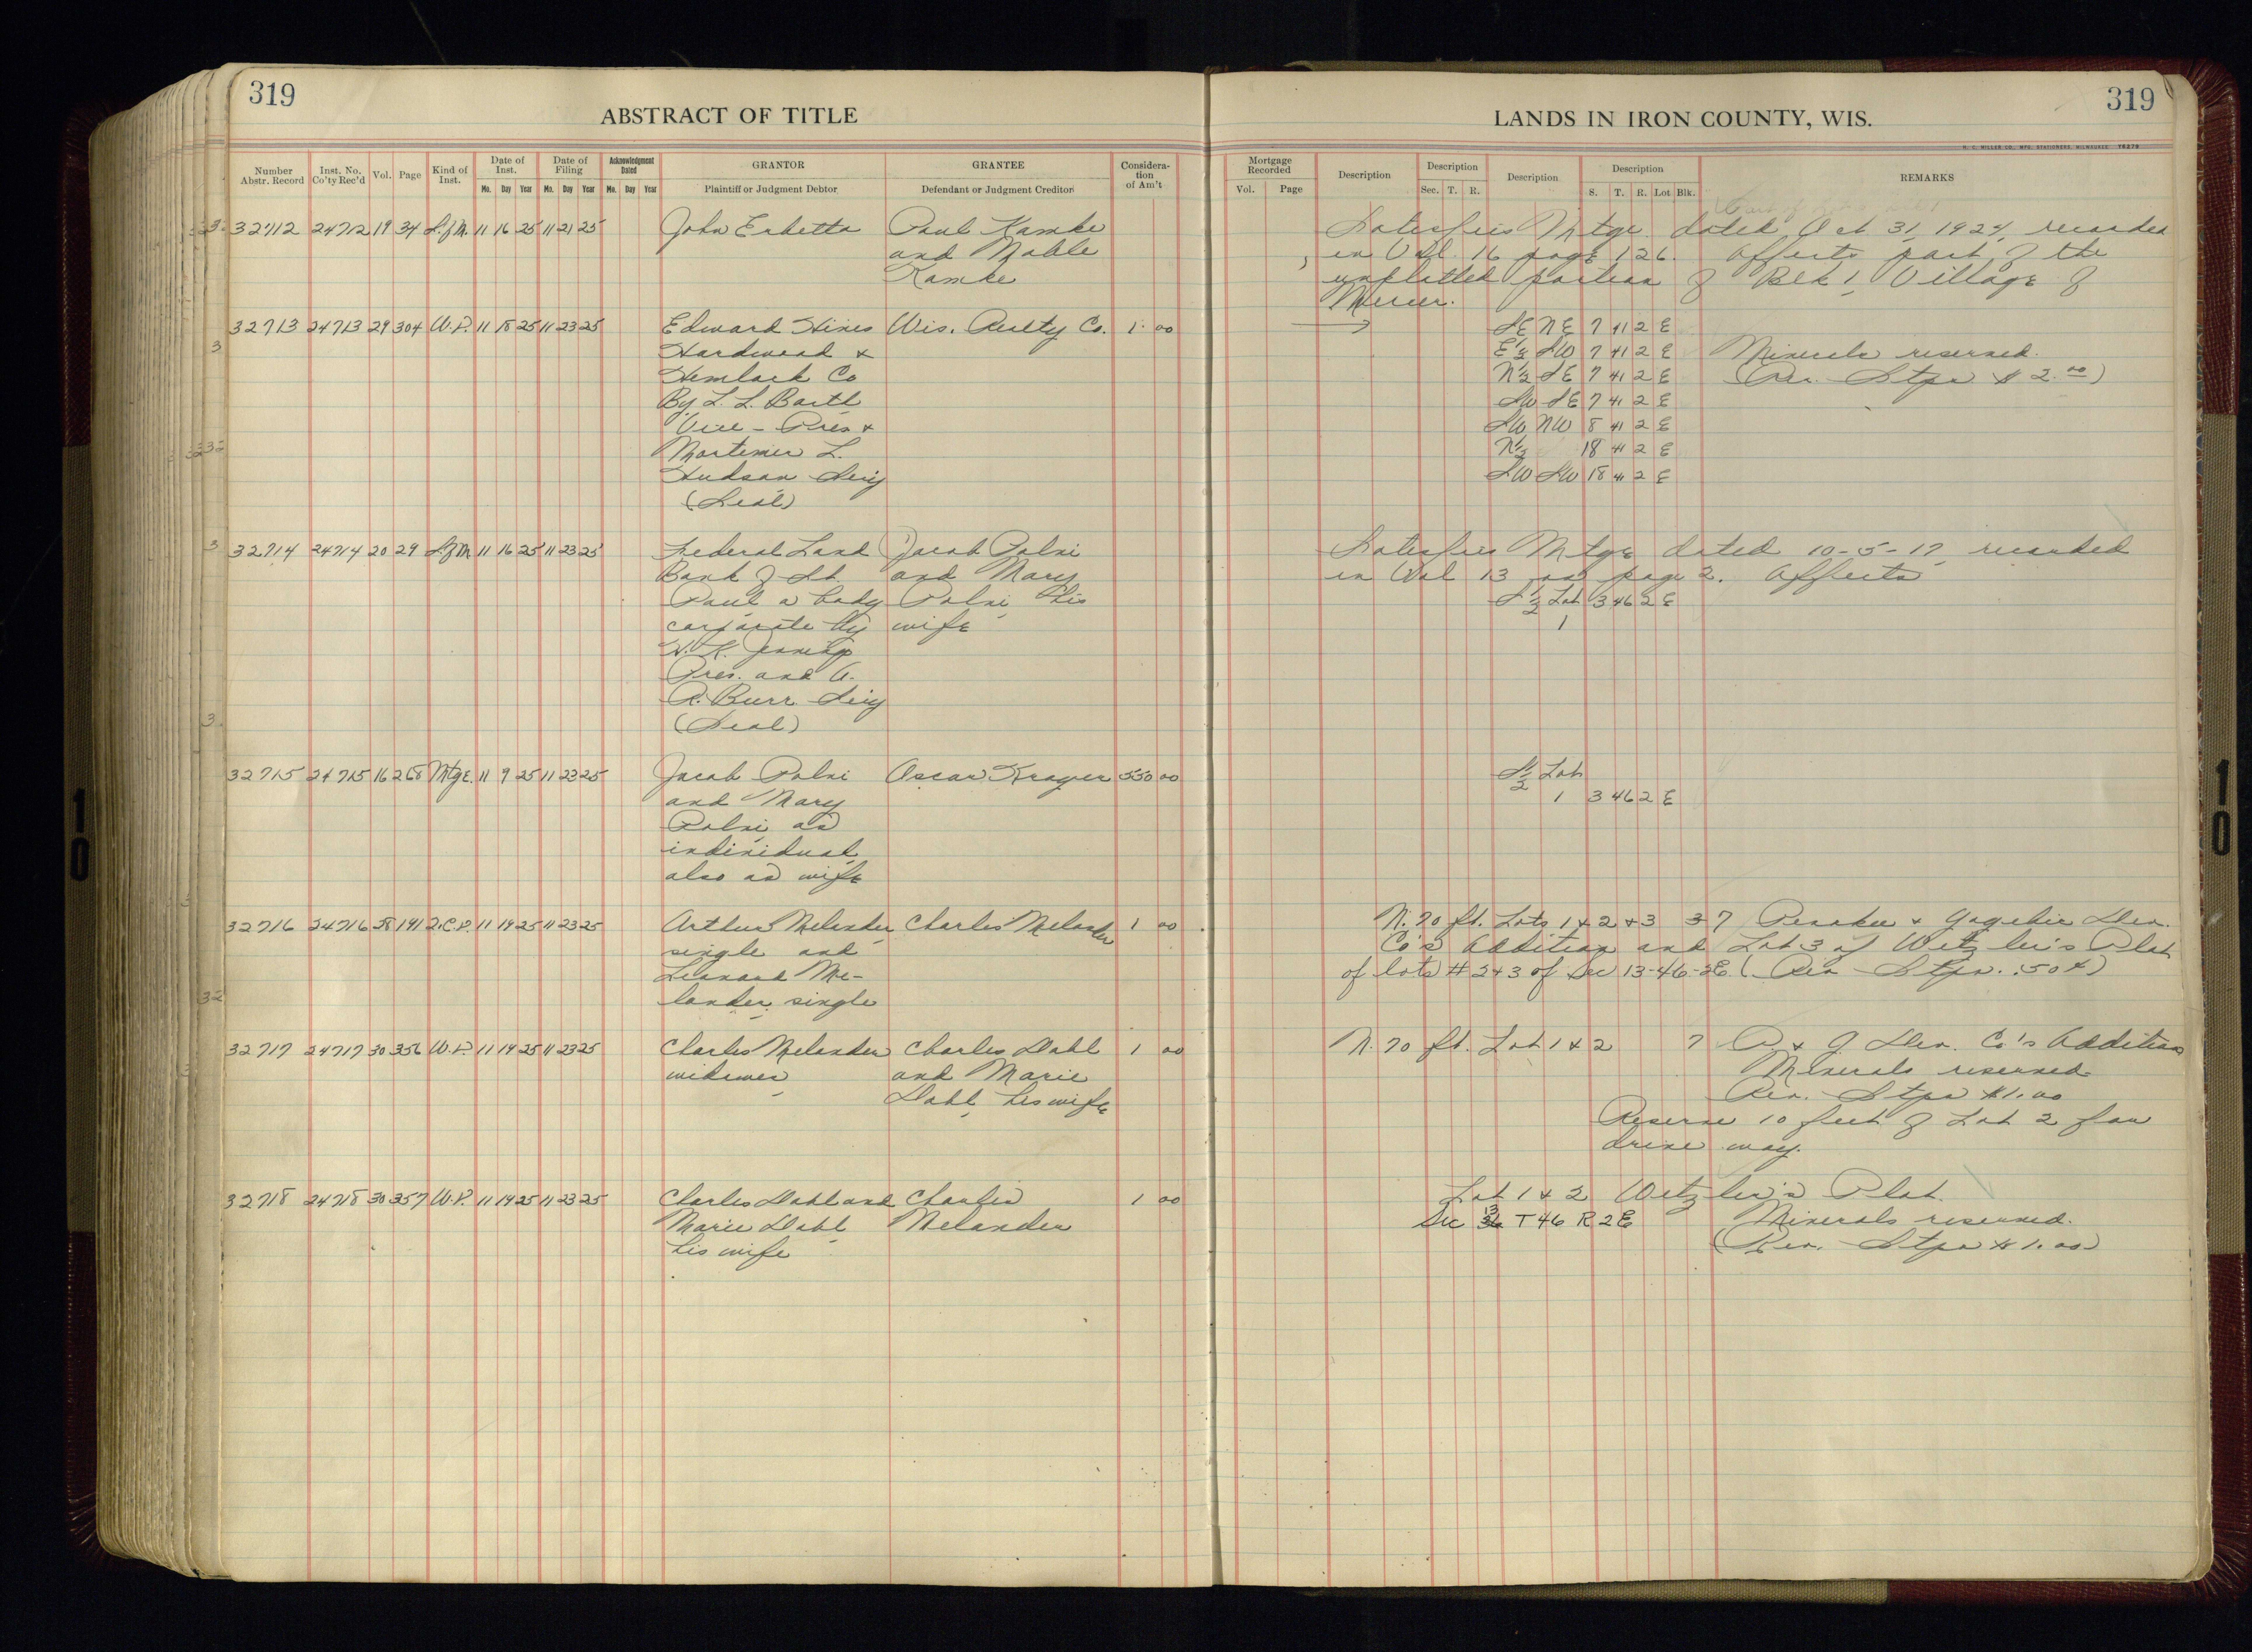 319
ABSTRACT OF TITLE
LANDS IN IRON COUNTY, WIS.
319
Number Abstr. Record Inst. No. Co'ty Rec'd Vol. Page Kind of Inst. Date of Inst. Mo. Day Year Date of Filing Mo. Day Year Acknowledgment Dated Mo. Day Year GRANTOR Plaintiff or Judgment Debtor GRANTEE Defendant or Judgment Creditor Consideration of Am't
Mortgage Recorded Vol. Page Description Description Sec. T. R. Description Description S. T. R. Lot Blk. REMARKS
32712 24712 19 34 S.of M. 11 16 25 11 21 25 John Erbetta Paul Kamke
and Mable
Kamke
Satisfies Mtge. dated Oct 31, 1924, recorded
in Vol. 16 page 126. Affects part of the
unplatted portion of Blk 1, Village of
Mercer.
32713 24713 29 304 W.D. 11 18 25 11 23 25 Edward Hines Wis. Realty Co. 1 00
Hardwood &
Hemlock Co
By L. L. Barth
Vice - Pres &
Mortimer L.
Hudson Secy
(Seal)
SE NE 7 41 2 E
E½ SW 7 41 2 E Minerals reserved.
N½ SE 7 41 2 E (Rev. Stps $2.00)
SW SE 7 41 2 E
SW NW 8 41 2 E
N½ 18 41 2 E
SW SW 18 41 2 E
32714 24714 20 29 S.of M 11 16 25 11 23 25 Federal Land Jacob Palni
Bank of St. and Mary
Paul a body Palni, his
corporate by wife
H. K. Jennings
Pres. and A.
R. Burr Secy
(Seal)
Satisfies Mtge dated 10-5-17, recorded
in Vol 13 on page 2. Affects
S½ Lot 3 46 2 E
1
32715 24715 16 268 Mtge. 11 9 25 11 23 25 Jacob Palni Oscar Kroger 550 00
and Mary
Palni, as
individual
also as wife
S½ Lot
1 3 46 2 E
32716 24716 28 191 Q.C.D. 11 19 25 11 23 25 Arthur Melander, Charles Melander 1 00
single and
Leonard Me-
lander, single
N. 70 ft. Lots 1 & 2 & 3 37 Penokee & Gogebic Dev.
Co's Addition and Lot 3 of Wetzler's Plat
of lots #2 & 3 of Sec 13-46-2E (Rev Stps. .50¢)
32717 24717 30 356 W.D. 11 19 25 11 23 25 Charles Melander Charles Dahl 1 00
widower and Marie
Dahl, his wife
N. 70 ft. Lot 1 & 2 7 P. & G. Dev. Co's Addition
Minerals reserved.
Rev. Stps $1.00
Reserve 10 feet of Lot 2 for
drive way.
32718 24718 30 357 W.D. 11 19 25 11 23 25 Charles Dahl and Charles 1 00
Marie Dahl, Melander
his wife
Lot 1 & 2 Wetzler's Plat.
Sec 13 T 46 R 2 E Minerals reserved.
(Rev. Stps $1.00)